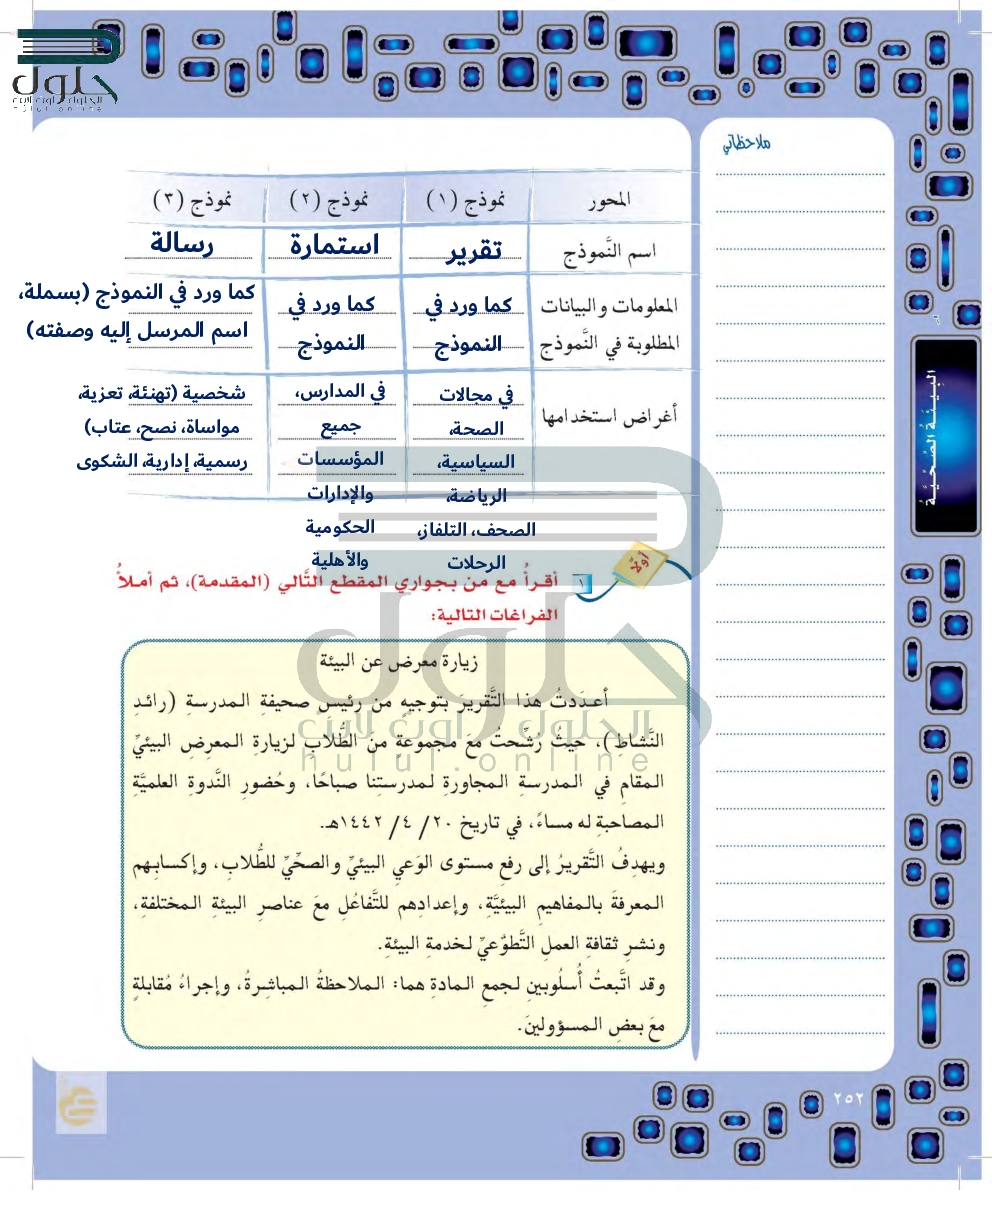 حلول
الحلول اون لاين
hulul.online
ملاحظاتي
المحور نموذج (١) نموذج (٢) نموذج (٣)
اسم النَّموذج تقرير استمارة رسالة
المعلومات والبيانات كما ورد في كما ورد في كما ورد في النموذج (بسملة،
المطلوبة في النَّموذج النموذج النموذج اسم المرسل إليه وصفته)
أغراض استخدامها في مجالات في المدارس، شخصية (تهنئة، تعزية،
الصحة، جميع مواساة، نصح، عتاب)
السياسية، المؤسسات رسمية، إدارية، الشكوى
الرياضة، والإدارات
الصحف، التلفاز، الحكومية
الرحلات والأهلية
البيئة الصحية
أولًا
١ أقرأُ مع من بجواري المقطع التَّالي (المقدمة)، ثم أملأُ
الفراغات التالية:
زيارة معرض عن البيئة
أعـددتُ هذا التَّقريرَ بتوجيهٍ من رئيسِ صحيفةِ المدرسةِ (رائدِ
النَّشاط)، حيثُ رُشِّحتُ مع مجموعةٍ من الطُّلابِ لزيارةِ المعرضِ البيئيِّ
المقامِ في المدرسةِ المجاورةِ لمدرستِنا صباحًا، وحُضورِ النَّدوةِ العلميَّةِ
المصاحبةِ له مساءً، في تاريخ ٢٠/ ٤/ ١٤٤٢هـ.
ويهدِفُ التَّقريرُ إلى رفعِ مستوى الوَعيِ البيئيِّ والصحِّيِّ للطُّلابِ، وإكسابِهم
المعرفةَ بالمفاهيمِ البيئيَّةِ، وإعدادِهم للتَّفاعُلِ معَ عناصرِ البيئةِ المختلفةِ،
ونشرِ ثقافةِ العملِ التَّطوّعيِّ لخدمةِ البيئةِ.
وقد اتَّبعتُ أُسلُوبينِ لجمعِ المادةِ هما: الملاحظةُ المباشرةُ، وإجراءُ مُقابلةٍ
معَ بعضِ المسؤولينَ.
حلول
الحلول اون لاين
hulul.online
٢٥٢